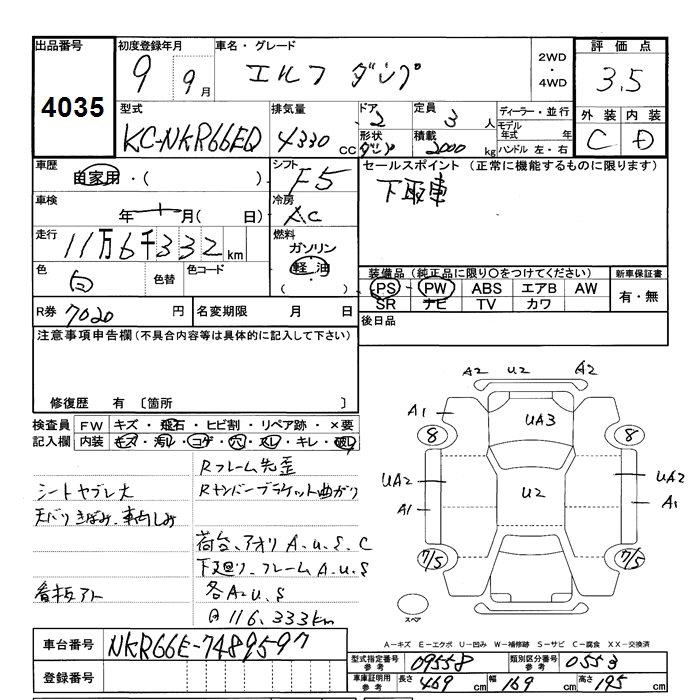 出品番号
4035
初度登録年月
9 9月
車名・グレード
エルフ ダンプ
2WD
・
4WD
評価点
3.5
型式
KC-NKR66ED
排気量
4330 CC
ドア
2
形状
ダンプ
定員
3 人
積載
2000 kg
ディーラー・並行
モデル年式 年
ハンドル 左・右
外装 内装
C D
車歴
自家用・( )
シフト
F5
セールスポイント (正常に機能するものに限ります)
下取車
車検
年 月( 日)
冷房
AC
走行
11万6千332km
燃料
ガソリン
軽油
( )
色
白
色替
色コード
装備品(純正品に限り〇をつけてください)
PS PW ABS エアB AW
SR ナビ TV カワ
新車保証書
有・無
R券 7020 円
名変期限 月 日
後日品
注意事項申告欄(不具合内容等は具体的に記入して下さい)
修復歴 有 〔箇所 〕
検査員記入欄
FW キズ・飛石・ヒビ割・リペア跡・×要
内装 キズ・汚れ・コゲ・穴・スレ・キレ・破れ
Rフレーム先歪
シートヤブレ大
Rナンバーブラケット曲がり
天バリきばみ、車内しみ
荷台、アオリ A.U.S.C
下廻り、フレームA.U.S
看板アト
各A.U.S
116.333km
A2 U2 A2
A1
UA3
8 8
UA2 U2 UA2
A1 A1
7/5 7/5
スペア
A-キズ E-エクボ U-凹み W-補修跡 S-サビ C-腐食 XX-交換済
車台番号 NKR66E-7489597
登録番号
型式指定番号 参考 09558
類別区分番号 参考 0553
車庫証明用 参考 長さ 469 cm 幅 169 cm 高さ 195 cm